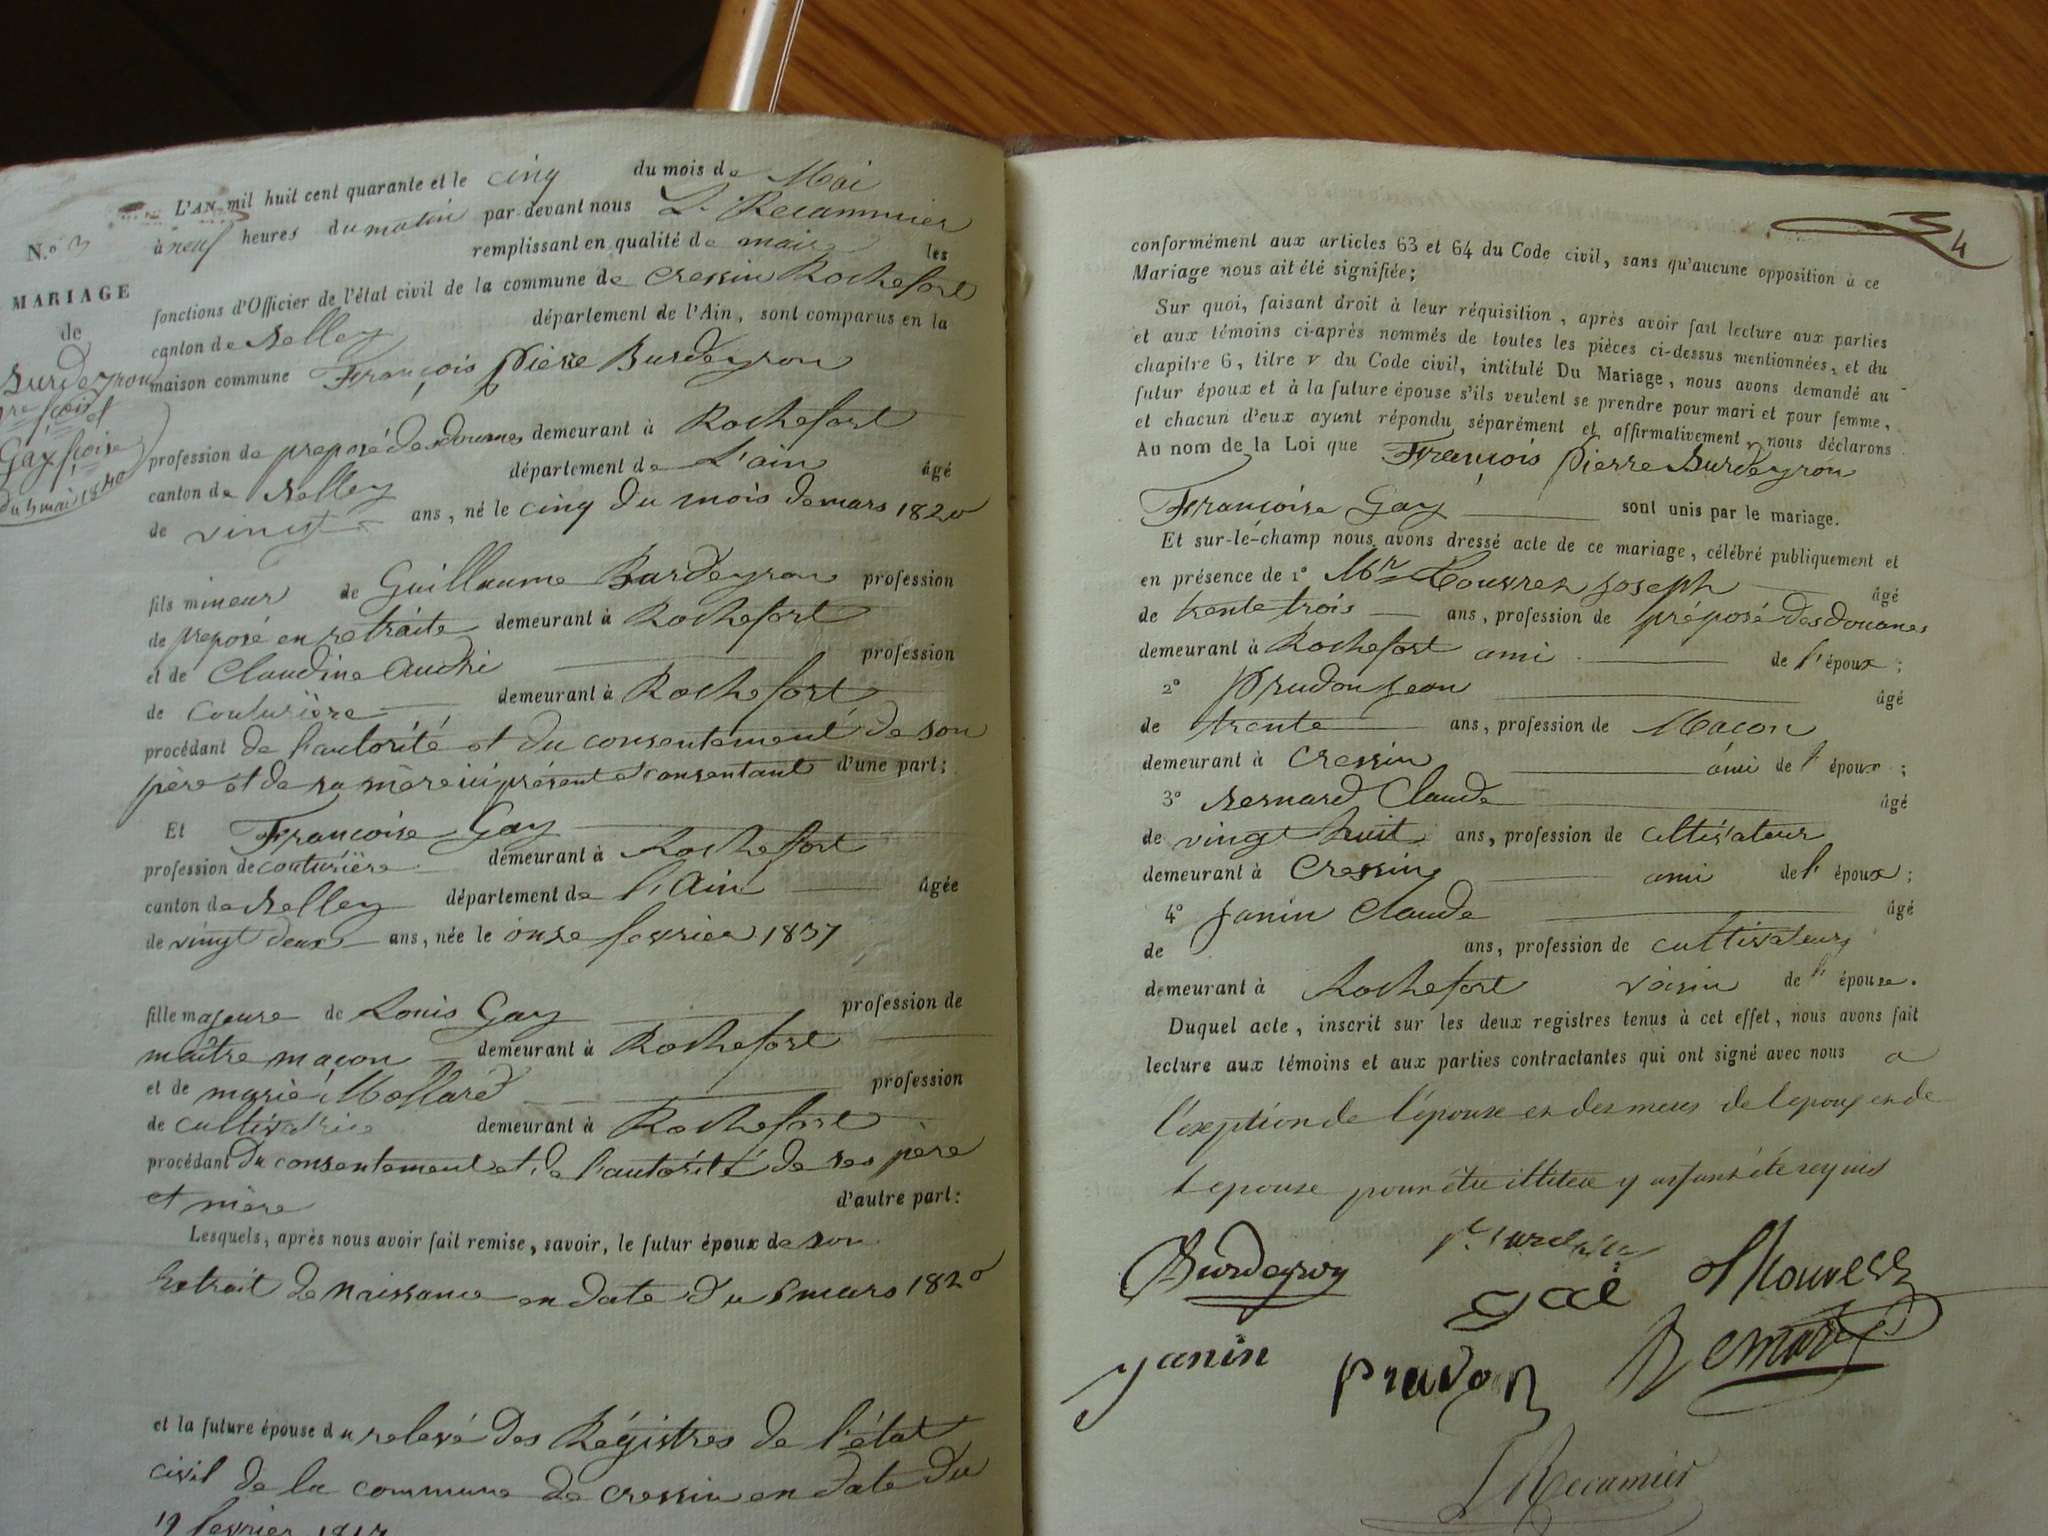 L'AN mil huit cent quarante et le cinq du mois de Mai
à neuf heures du matin par-devant nous L. Recammier
N.º 3 remplissant en qualité de maire les
MARIAGE fonctions d'Officier de l'état civil de la commune de Cressin Rochefort
de canton de Belley département de l'Ain, sont comparus en la
Burdeyron maison commune François Pierre Burdeyron
et
Gay fçoise profession de preposé des douanes demeurant à Rochefort
du 5 mai 1840 canton de Belley département de L'ain âgé
de vingt ans, né le cinq du mois de mars 1820
fils mineur de Guillaume Burdeyron profession
de preposé en retraite demeurant à Rochefort
et de Claudine André profession
de couturière demeurant à Rochefort
procédant de l'autorité et du consentement de son
père et de sa mère ici présent et consentant d'une part;
Et Françoise Gay
profession de couturière demeurant à Rochefort
canton de Belley département de l'Ain âgée
de vingt deux ans, née le onze fevrier 1837
fille majeure de Louis Gay profession de
maître maçon demeurant à Rochefort
et de marie Mollard profession
de cultivatrice demeurant à Rochefort
procédant du consentement et de l'autorité de ses père
et mère d'autre part:
Lesquels, après nous avoir fait remise, savoir, le futur époux de son
Extrait de Naissance en date du 6 mars 1820
et la future épouse du relevé des Régistres de l'état
civil de la commune de Cressin en date du
fevrier
4
conformément aux articles 63 et 64 du Code civil, sans qu'aucune opposition à ce
Mariage nous ait été signifiée;
Sur quoi, faisant droit à leur réquisition, après avoir fait lecture aux parties
et aux témoins ci-après nommés de toutes les pièces ci-dessus mentionnées, et du
chapitre 6, titre v du Code civil, intitulé Du Mariage, nous avons demandé au
futur époux et à la future épouse s'ils veulent se prendre pour mari et pour femme,
et chacun d'eux ayant répondu séparément et affirmativement, nous déclarons
Au nom de la Loi que François Pierre Burdeyron
Françoise Gay sont unis par le mariage.
Et sur-lé-champ nous avons dressé acte de ce mariage, célébré publiquement et
en présence de 1º Mr Joseph âgé
de trente trois ans, profession de préposé des douanes
demeurant à Rochefort ami de l'époux;
2º Prudon Jean âgé
de trente ans, profession de Macon
demeurant à Cressin ami de l'époux;
3º Bernard Claude âgé
de vingt huit ans, profession de cultivateur
demeurant à Cressin ami de l'époux;
4º Janin Claude âgé
de ans, profession de cultivateur
demeurant à Rochefort voisin de l'épouse.
Duquel acte, inscrit sur les deux registres tenus à cet effet, nous avons fait
lecture aux témoins et aux parties contractantes qui ont signé avec nous a
l'exeption de l'épouse et des meres de lepoux et de
lepouse pour être requis
Burdeyron
gae
Janin prudon Bernard
L Recamier